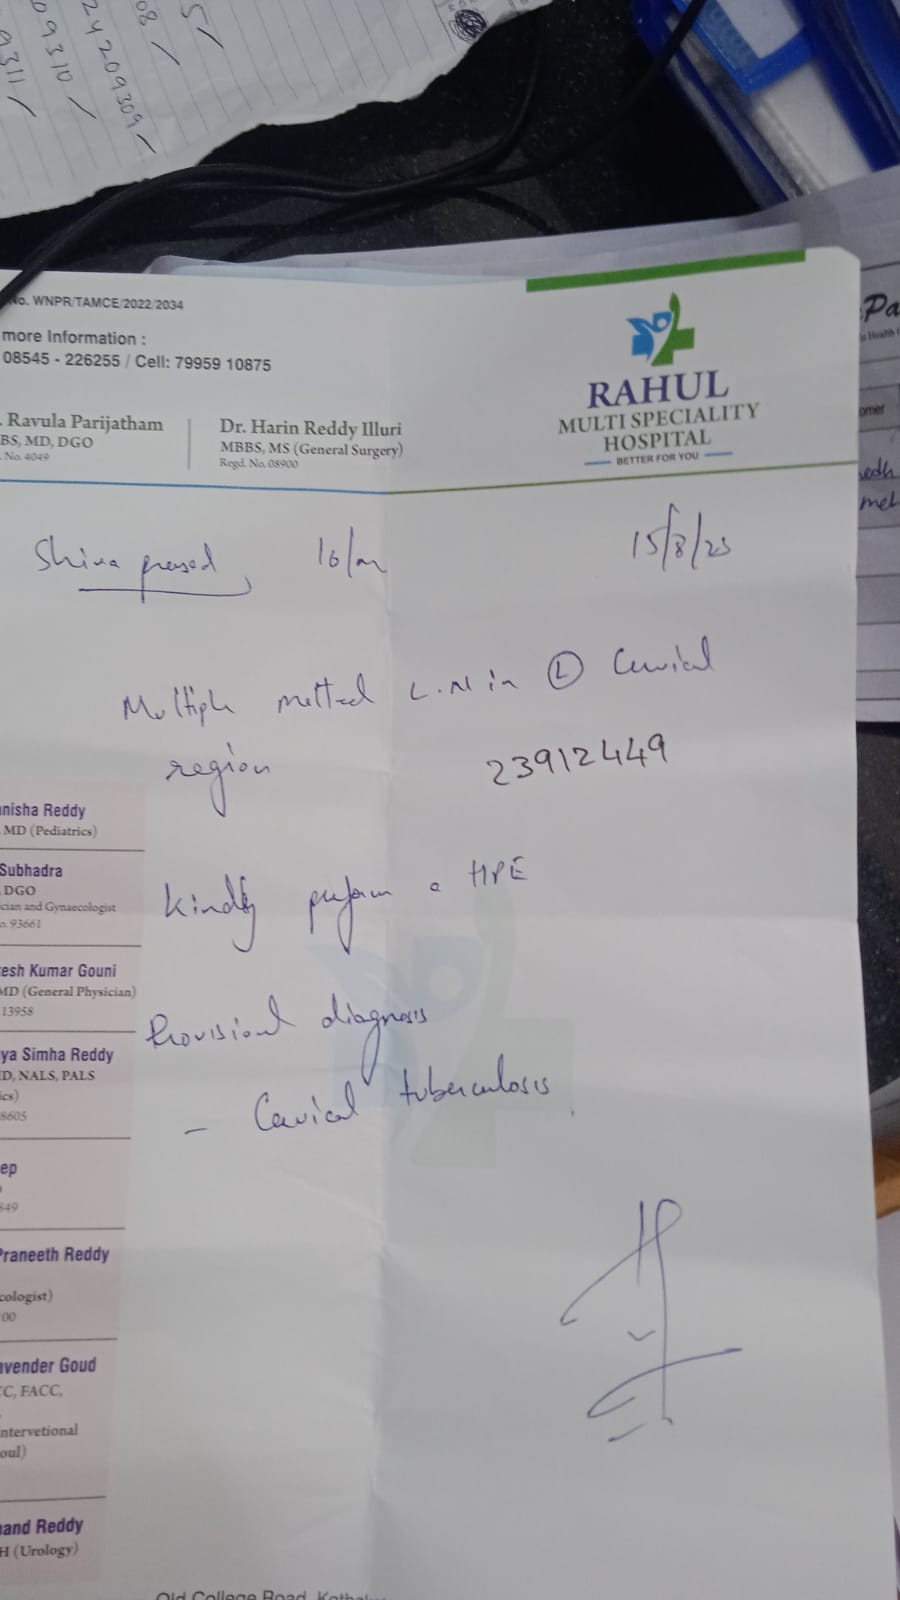 5/
08/
24209309/
09310/
9311/
No. WNPR/TAMCE/2022/2034
more Information :
08545 - 226255 / Cell: 79959 10875
RAHUL
MULTI SPECIALITY
HOSPITAL
BETTER FOR YOU
. Ravula Parijatham
BS, MD, DGO
. No. 4049
Dr. Harin Reddy Illuri
MBBS, MS (General Surgery)
Regd. No. 08900
Shiva prasad 16/m 15/8/25
Multiple matted L.N in (L) Cervical
region 23912449
Kindly perform a HPE
Provisional diagnosis
- Cervical tuberculosis
nisha Reddy
MD (Pediatrics)
Subhadra
DGO
cian and Gynaecologist
o. 93661
esh Kumar Gouni
MD (General Physician)
13958
ya Simha Reddy
D, NALS, PALS
ics)
8605
ep
649
Praneeth Reddy
cologist)
00
avender Goud
CC, FACC,
ntervetional
oul)
nand Reddy
H (Urology)
Old College Road,
Pa
Health
omer